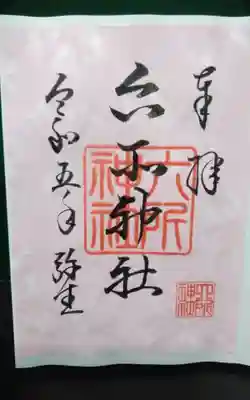 奉拝
六所神社
六所神社
六所神社
令和五年 弥生